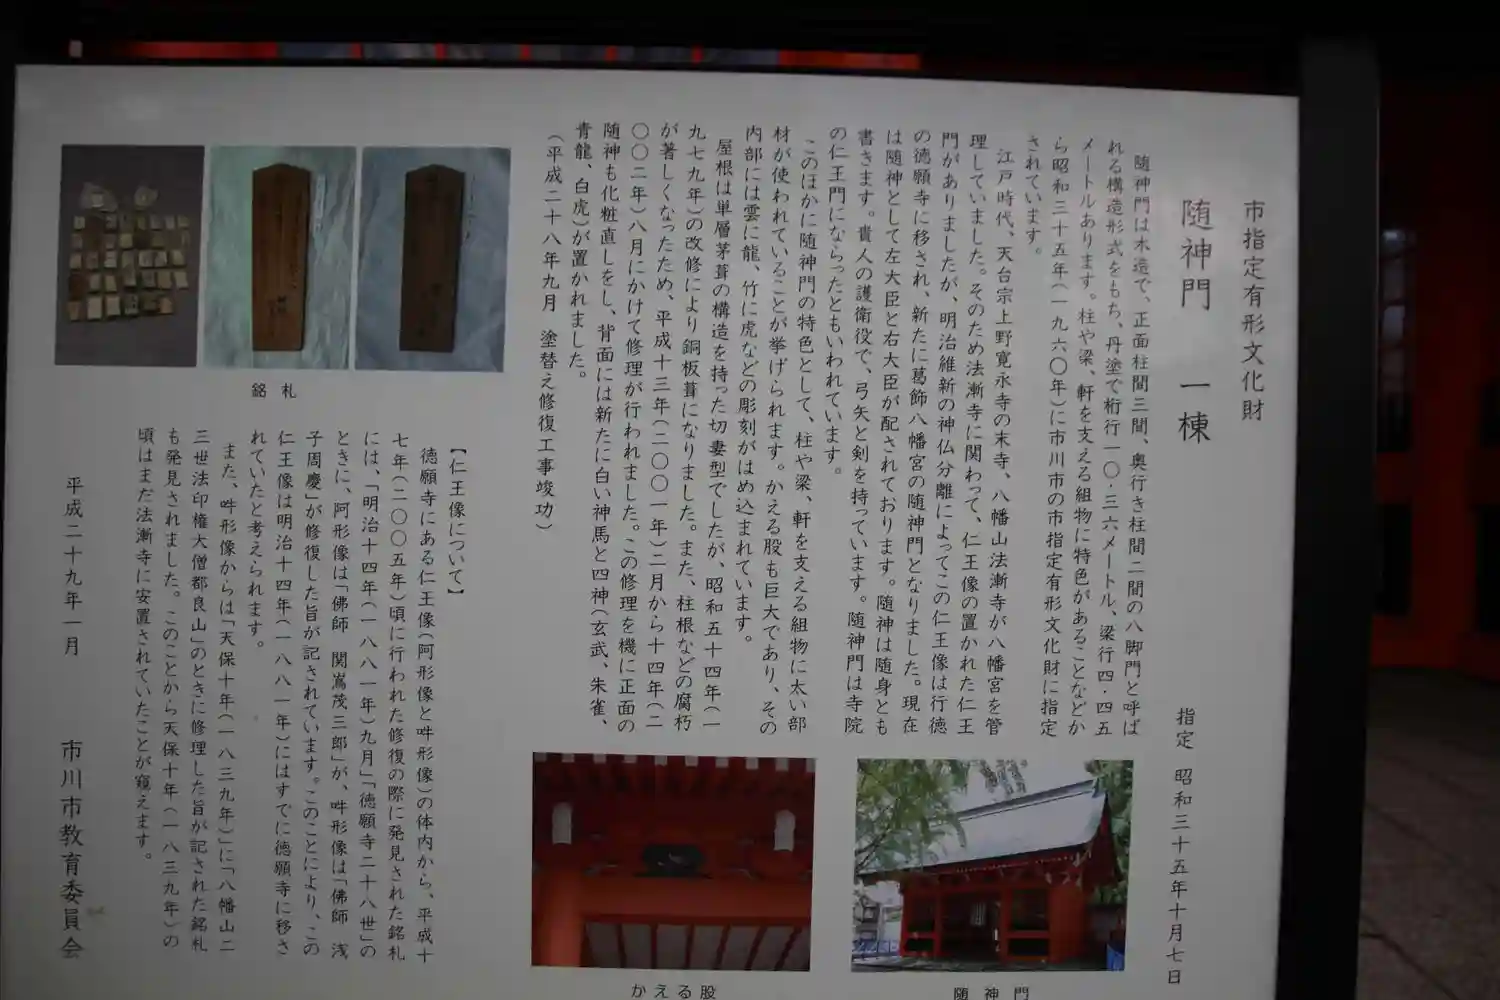 市指定有形文化財
随神門　一棟
指定　昭和三十五年十月七日
随神門は木造で、正面柱間三間、奥行き柱間二間の八脚門と呼ば
れる構造形式をもち、丹塗で桁行一〇・三六メートル、梁行四・四五
メートルあります。柱や梁、軒を支える組物に特色があることなどか
ら昭和三十五年（一九六〇年）に市川市の市指定有形文化財に指定
されています。
江戸時代、天台宗上野寛永寺の末寺、八幡山法漸寺が八幡宮を管
理していました。そのため法漸寺に関わって、仁王像の置かれた仁王
門がありましたが、明治維新の神仏分離によってこの仁王像は行徳
の徳願寺に移され、新たに葛飾八幡宮の随神門となりました。現在
は随神として左大臣と右大臣が配されております。随神は随身とも
書きます。貴人の護衛役で、弓矢と剣を持っています。随神門は寺院
の仁王門にならったともいわれています。
このほかに随神門の特色として、柱や梁、軒を支える組物に太い部
材が使われていることが挙げられます。かえる股も巨大であり、その
内部には雲に龍、竹に虎などの彫刻がはめ込まれています。
屋根は単層茅葺の構造を持った切妻型でしたが、昭和五十四年（一
九七九年）の改修により銅板葺になりました。また、柱根などの腐朽
が著しくなったため、平成十三年（二〇〇一年）二月から十四年（二
〇〇二年）八月にかけて修理が行われました。この修理を機に正面の
随神も化粧直しをし、背面には新たに白い神馬と四神（玄武、朱雀、
青龍、白虎）が置かれました。
（平成二十八年九月　塗替え修復工事竣功）
銘札
【仁王像について】
徳願寺にある仁王像（阿形像と吽形像）の体内から、平成十
七年（二〇〇五年）頃に行われた修復の際に発見された銘札
には、「明治十四年（一八八一年）九月」「徳願寺二十八世」の
ときに、阿形像は「佛師　関嶌茂三郎」が、吽形像は「佛師　浅
子周慶」が修復した旨が記されています。このことにより、この
仁王像は明治十四年（一八八一年）にはすでに徳願寺に移さ
れていたと考えられます。
また、吽形像からは「天保十年（一八三九年）」に「八幡山二
三世法印権大僧都良山」のときに修理した旨が記された銘札
も発見されました。このことから天保十年（一八三九年）の
頃はまだ法漸寺に安置されていたことが窺えます。
平成二十九年一月
市川市教育委員会
随神門
かえる股